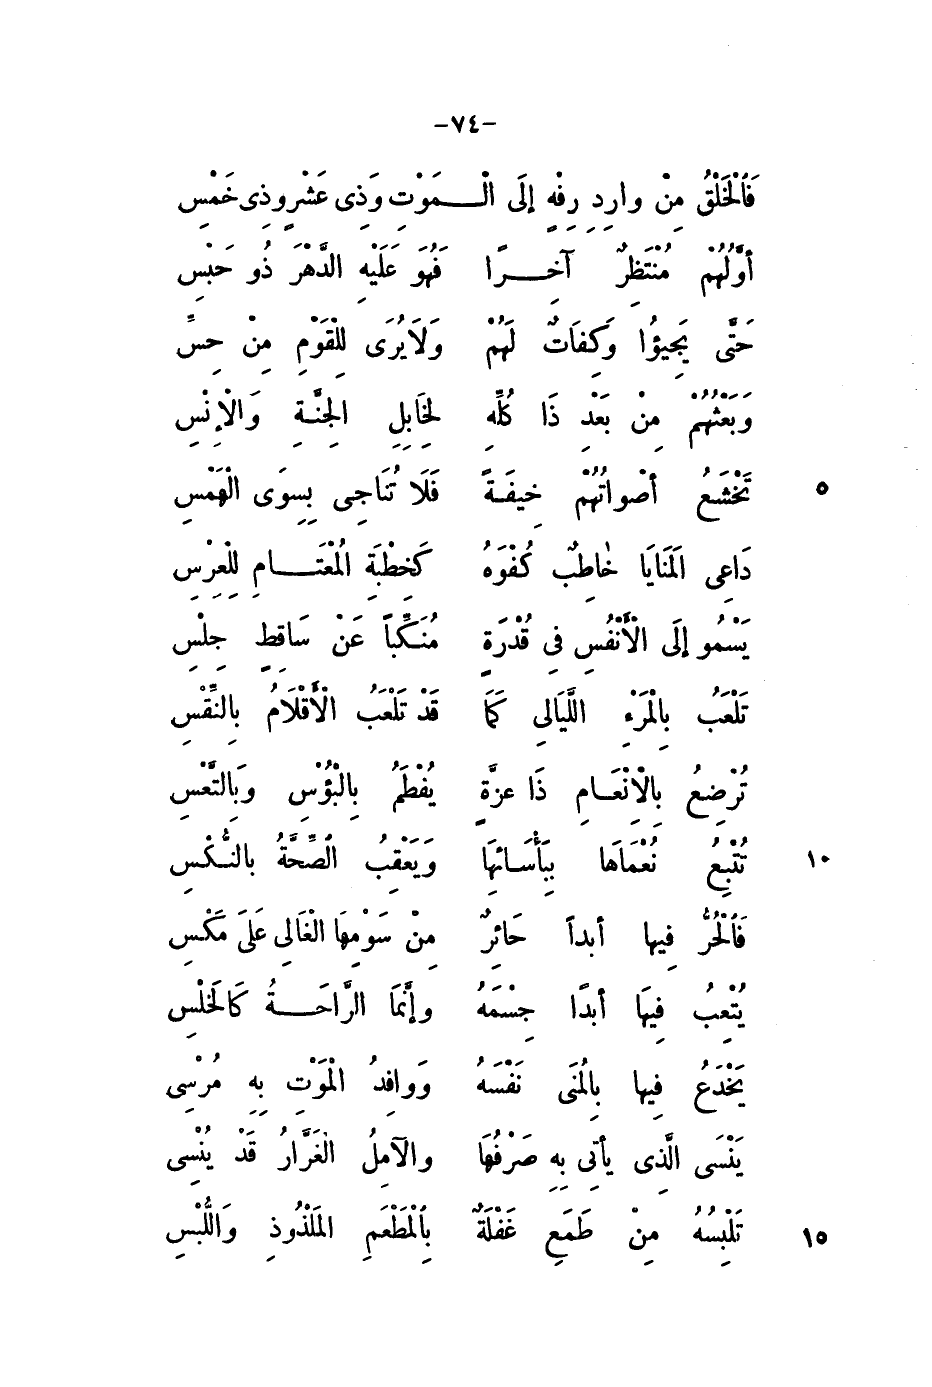 -٧٤-
فَٱلْخَلْقُ مِنْ وارِدِ رِفْهٍ إلَى الْـمَوْتِ وَذِى عَشْرٍ وذِى خَمْسِ
أوَّلُهُمْ مُنْتَظِرٌ آخِـرًا فَهُوَ عَلَيْهِ الدَّهْرَ ذُو حَبْسِ
حَتَّى يَجِيؤُا وَكِفَاتٌ لَهُمْ وَلَايُرَى لِلْقَوْمِ مِنْ حِسِّ
وَبَعْثُهُمْ مِنْ بَعْدِ ذَا كُلِّهِ لِخَابِلِ الجِنَّةِ وَالْإنْسِ
٥ تَخْشَعُ أصْواتُهُمْ خِيفَةً فَلَا تُنَاجِى بِسِوَى الْهَمْسِ
دَاعِى اَلمَنَايَا خاطِبٌ كُفْوَهُ كَخِطْبَةِ المُعْتَـامِ لِلْعِرْسِ
يَسْمُو إلَى الْأَنْفُسِ فِى قُدْرَةٍ مُنَكِّباً عَنْ سَاقِطٍ جِلْسِ
تَلْعَبُ بِالْمَرْءِ اللَّيَالِى كَمَا قَدْ تَلْعَبُ الْأَقْلَامُ بِالنِّقْسِ
تُرْضِعُ بِالْإِنْعَـامِ ذَا عزَّةٍ يُفْطَمُ بِالْبُؤْسِ وَبِالتَّعْسِ
١٠ تُتْبِعُ نُعْمَاهَا بِبَأْسَـائِهَا وَيَعْقِبُ الصِّحَّةُ بالنُّـكْسِ
فَٱلْحُرُّ فِيها أبداً حَائِرٌ مِنْ سَوْمِهَا الْغَالِى عَلَى مَكْسِ
يُتْعِبُ فِيهَا أبدًا جِسْمَهُ وإنَّمَا الرَّاحَـةُ كَالَخلْسِ
يَخْدَعُ فِيها بِالمُنَى نَفْسَهُ وَوافِدُ الْمَوْتِ بِهِ مُرْسِى
يَنْسَى الَّذِى يأتِى بِهِ صَرْفُهَا والآمِلُ الغَرَّارُ قَدْ يُنْسِى
١٥ تَلْبِسُهُ مِنْ طَمَعٍ غَفْلَةٌ بِٱلْمَطْعَمِ المَلْذُوذِ وَاللُّبْسِ